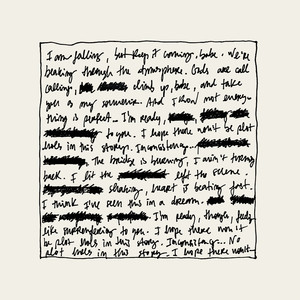 I am falling, but keep it coming, babe. We're
breaking through the atmosphere. Gods are call
calling, climb up, babe, and take
you as my souvenir. And I know not every-
thing is perfect. I'm ready,
to you. I hope there won't be plot
holes in this story. Inconsistency...
The bridge is burning, I ain't turning
back. I lit the left the scene.
Shaking, heart is beating fast.
I think I've seen this in a dream.
I'm ready, though, feels
like surrendering to you. I hope there won't
be plot holes in this story. Inconsistency... No
plot holes in this story. I hope there won't